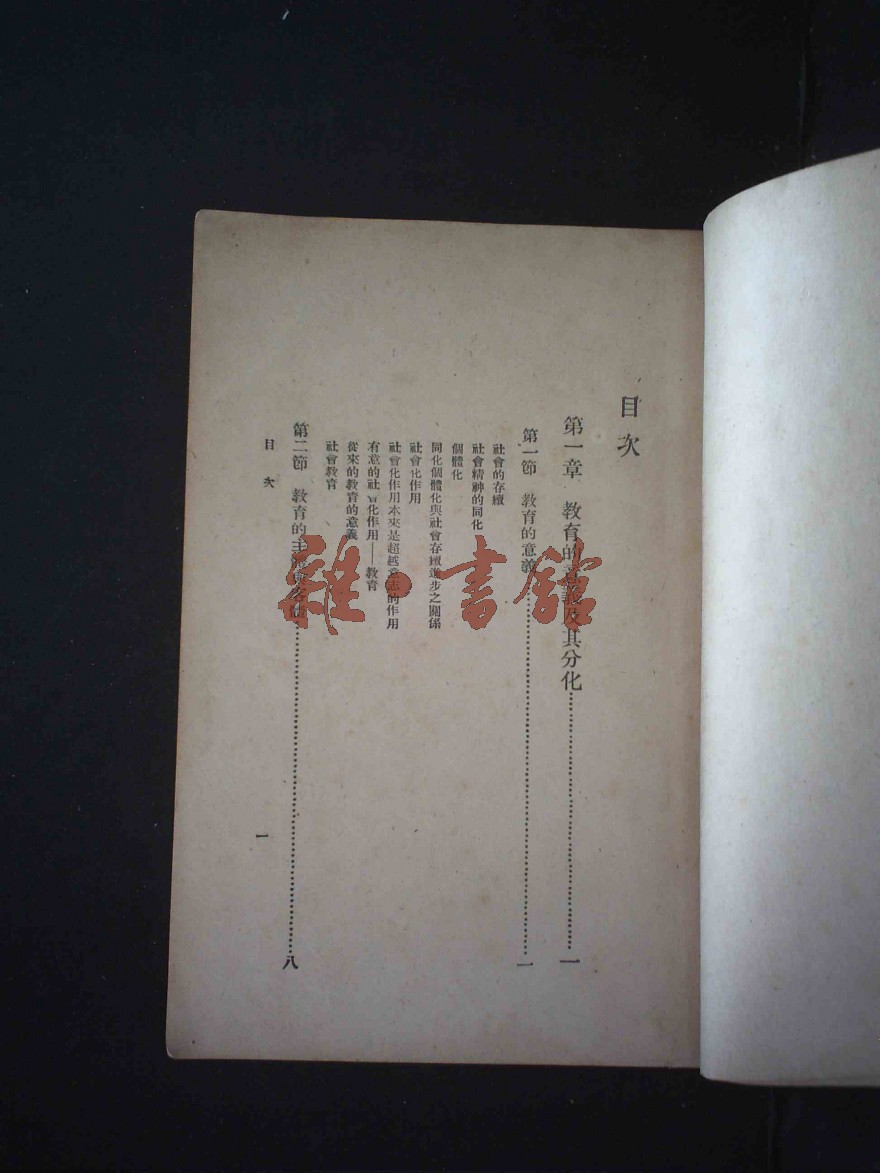 目次
第一章 教育的意義及其分化……一
第一節 教育的意義……一
社會的存續
社會精神的同化
個體化
同化個體化與社會存續進步之關係
社會化作用
社會化作用本來是超越意志的作用
有意的社會化作用——教育
從來的教育的意義
社會教育
第二節 教育的主體與客體……八
目次
一
雜·書館